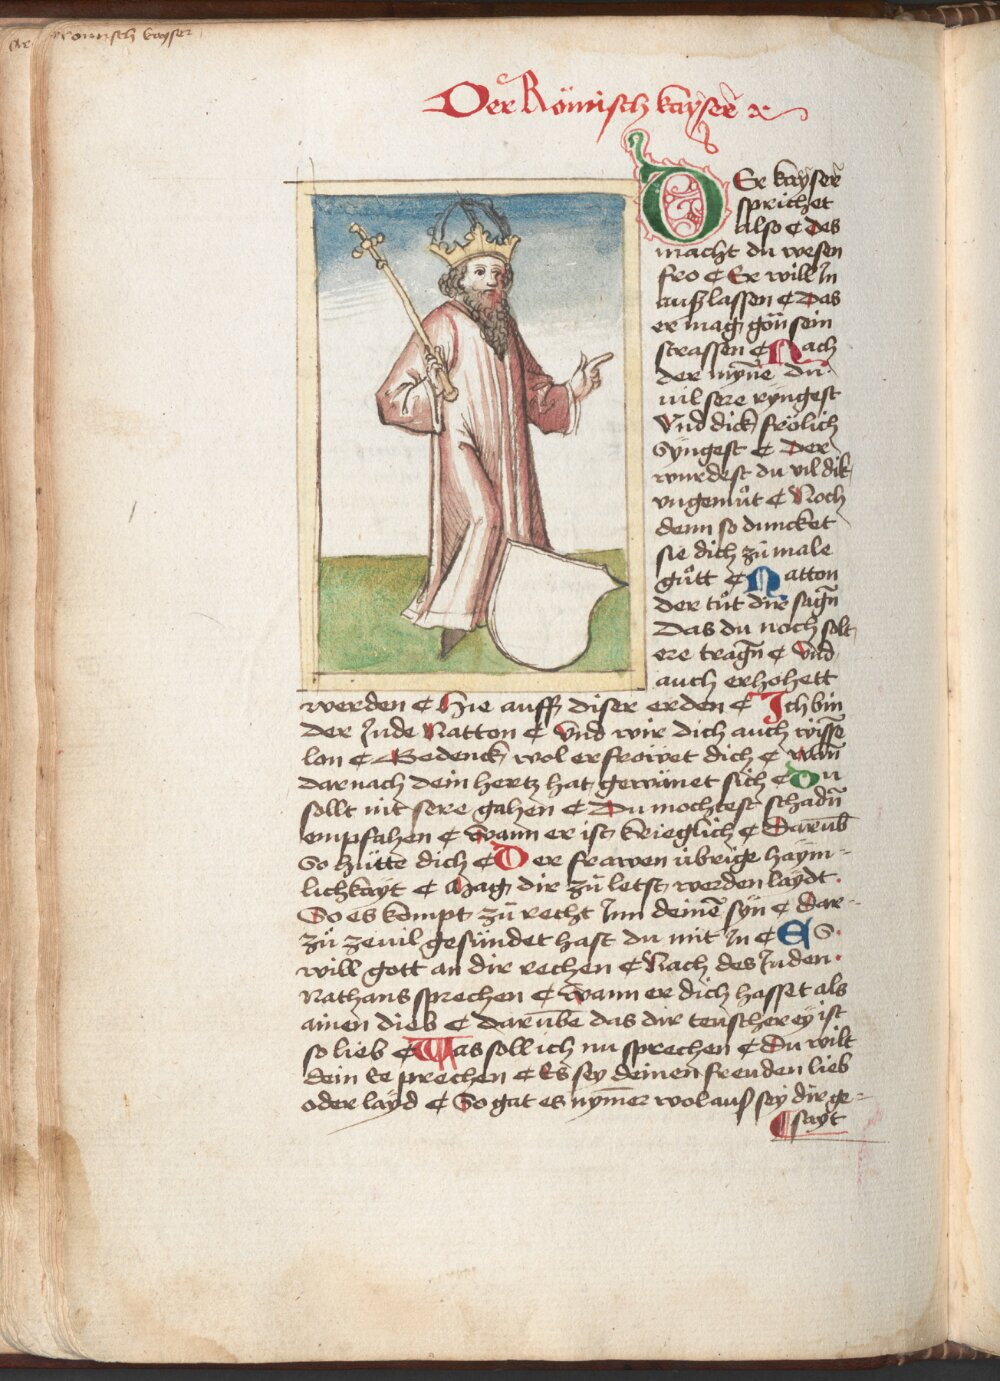 Römisch kayser
Der Römisch kayser̄
DEr kayser̄
sprichet
also ¢ Des
macht du wesen
fro ¢ Er will In
auß lassen ¢ Das
er mag gön sein
strassen ¢ Nach
der myne du
vil sere ryngest
Vnd dick frölich
Syngest ¢ Der
wurdest du vil dik
vngemůt ¢ Noch
denn so duncket
sie dich zů male
gůtt ¢ Natton
der tůt dir sagn̄
Das du noch solt
ere tragn̄ ¢ Vnd
auch erhohett
werden ¢ Hie auff diser erden ¢ Ich bin
Der Jude Natton ¢ Vnd wir dich auch wissē
lon ¢ Gedenck wol erfrowet dich ¢ wan̄
darnach dein hertz hat gewänet sich ¢ Du
sollt nit sere gahen ¢ Du mochtest schadn̄
empfahen ¢ Wann er ist krieglich ¢ Darūb
So hütte dich ¢ Der frawen übrige haym-
lichkayt ¢ Mag dir zů letst werden laydt.
So es kompt zů recht Inn deinē syn ¢ Dar-
zů zeuil gesündet hast du mit In ¢ ES
will gott an dir rechen ¢ Nach des Juden
Nathans sprechen ¢ Wann er dich hasset als
ainen dieb ¢ Darūbe das dir teuscherey ist
so lieb ¢ Was soll ich nu sprechen ¢ Du wilt
dein Ee prechen ¢ Es sey deinen freuden lieb
oder layd ¢ So gat es nȳmer wol auß sey dir ge-
sayt